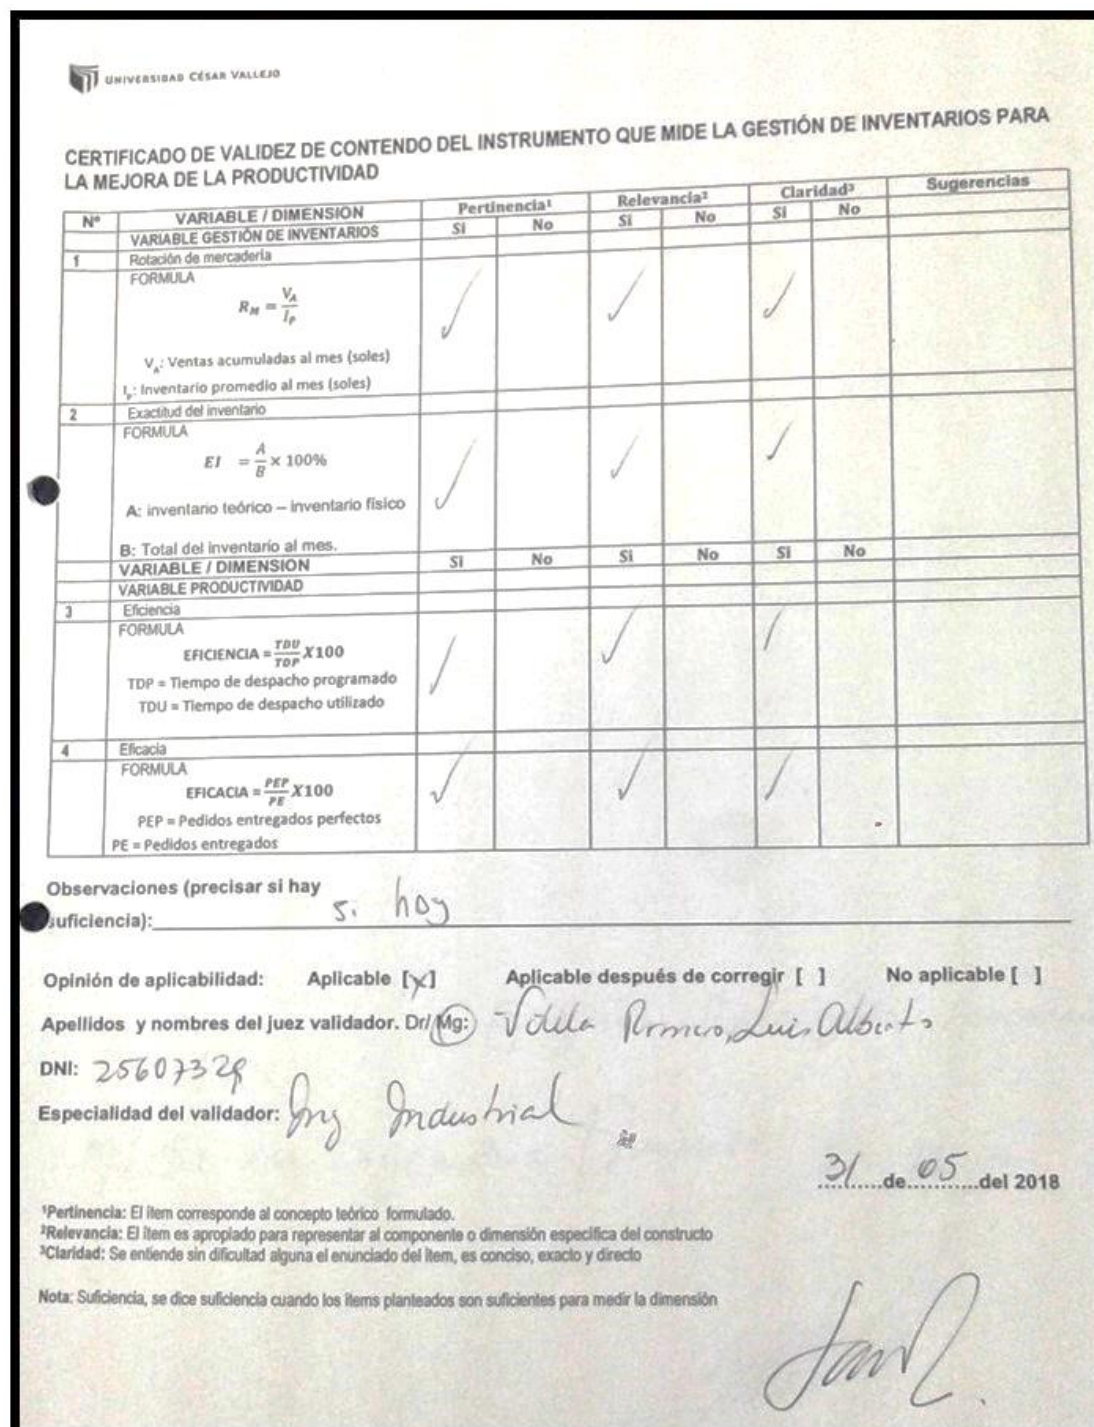 UNIVERSIDAD CÉSAR VALLEJO
CERTIFICADO DE VALIDEZ DE CONTENDO DEL INSTRUMENTO QUE MIDE LA GESTIÓN DE INVENTARIOS PARA
LA MEJORA DE LA PRODUCTIVIDAD
Nº VARIABLE / DIMENSION Pertinencia¹ Relevancia² Claridad³ Sugerencias
VARIABLE GESTIÓN DE INVENTARIOS Si No Si No Si No
1 Rotación de mercadería
FORMULA
R_M = V_A / I_P
V_A: Ventas acumuladas al mes (soles)
I_P: Inventario promedio al mes (soles)
2 Exactitud del inventario
FORMULA
EI = A/B × 100%
A: inventario teórico – inventario físico
B: Total del inventario al mes.
VARIABLE / DIMENSION Si No Si No Si No
VARIABLE PRODUCTIVIDAD
3 Eficiencia
FORMULA
EFICIENCIA = TDU/TDP X100
TDP = Tiempo de despacho programado
TDU = Tiempo de despacho utilizado
4 Eficacia
FORMULA
EFICACIA = PEP/PE X100
PEP = Pedidos entregados perfectos
PE = Pedidos entregados
Observaciones (precisar si hay
suficiencia): Si hay
Opinión de aplicabilidad: Aplicable [x] Aplicable después de corregir [ ] No aplicable [ ]
Apellidos y nombres del juez validador. Dr/ Mg: Romero, Luis Alberto
DNI:
Especialidad del validador: Ing Industrial
31 de 05 del 2018
¹Pertinencia: El ítem corresponde al concepto teórico formulado.
²Relevancia: El ítem es apropiado para representar al componente o dimensión específica del constructo
³Claridad: Se entiende sin dificultad alguna el enunciado del ítem, es conciso, exacto y directo
Nota: Suficiencia, se dice suficiencia cuando los ítems planteados son suficientes para medir la dimensión